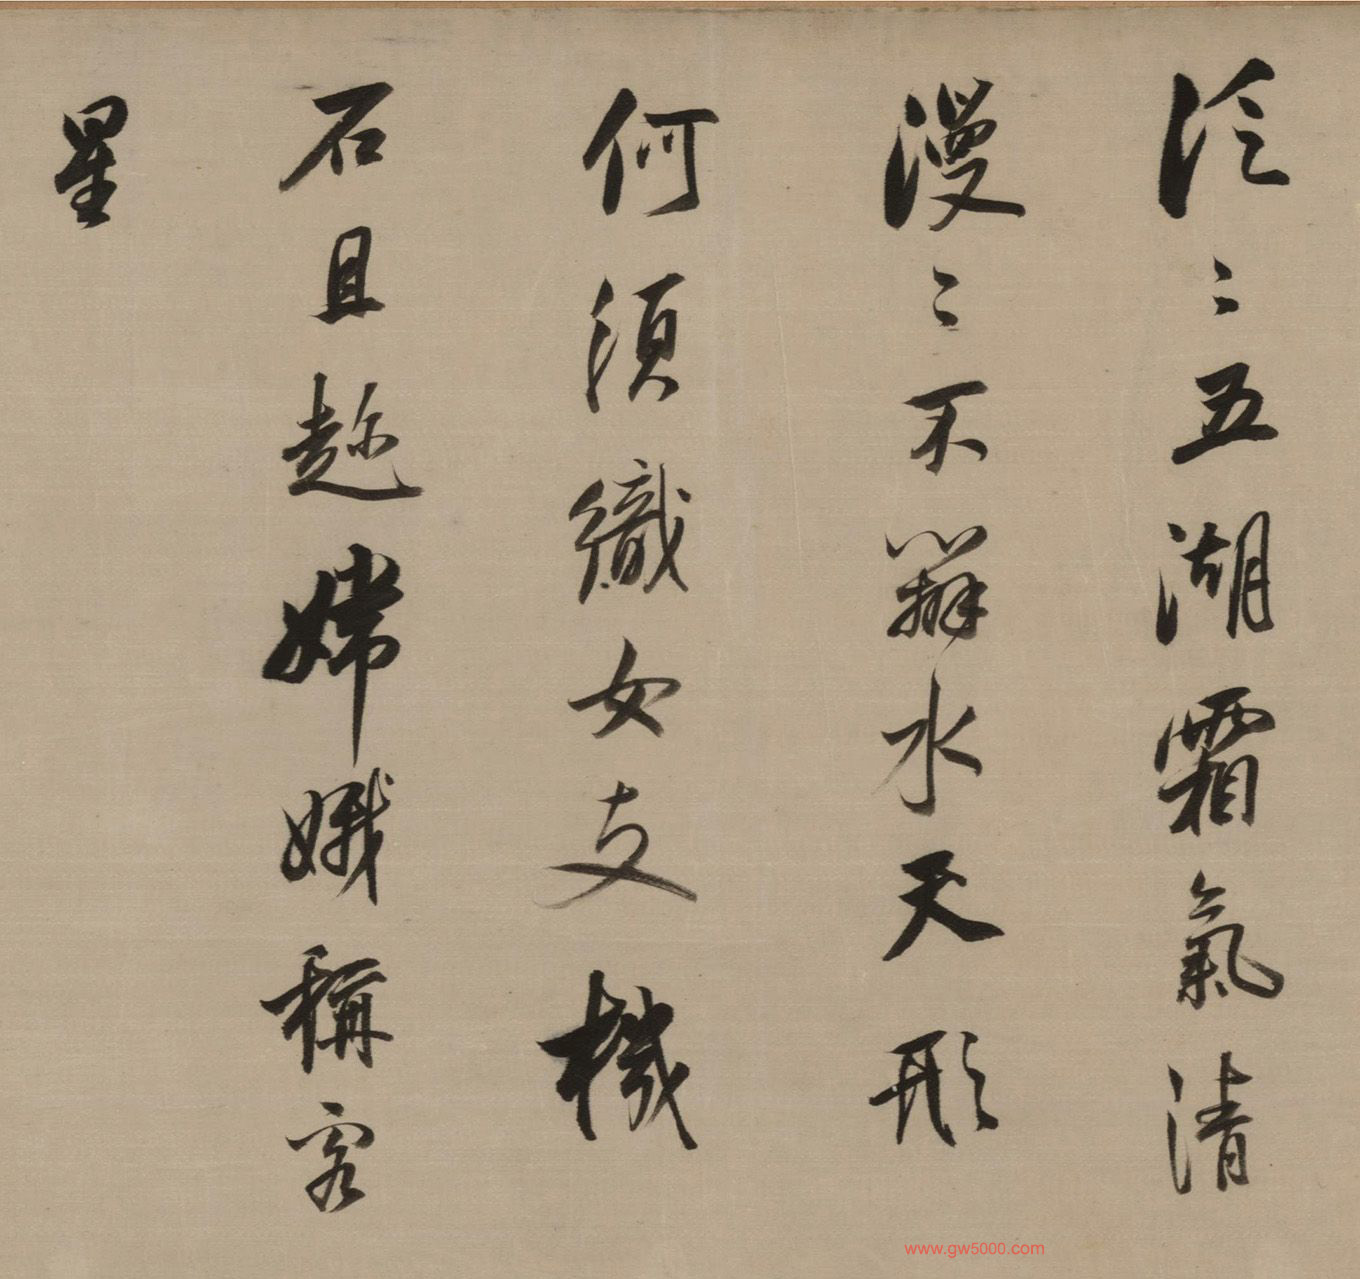 泛〻五湖霜氣清
漫〻不辨水天形
何須織女支機
石且趁嫦娥稱客
星
www.gw5000.com